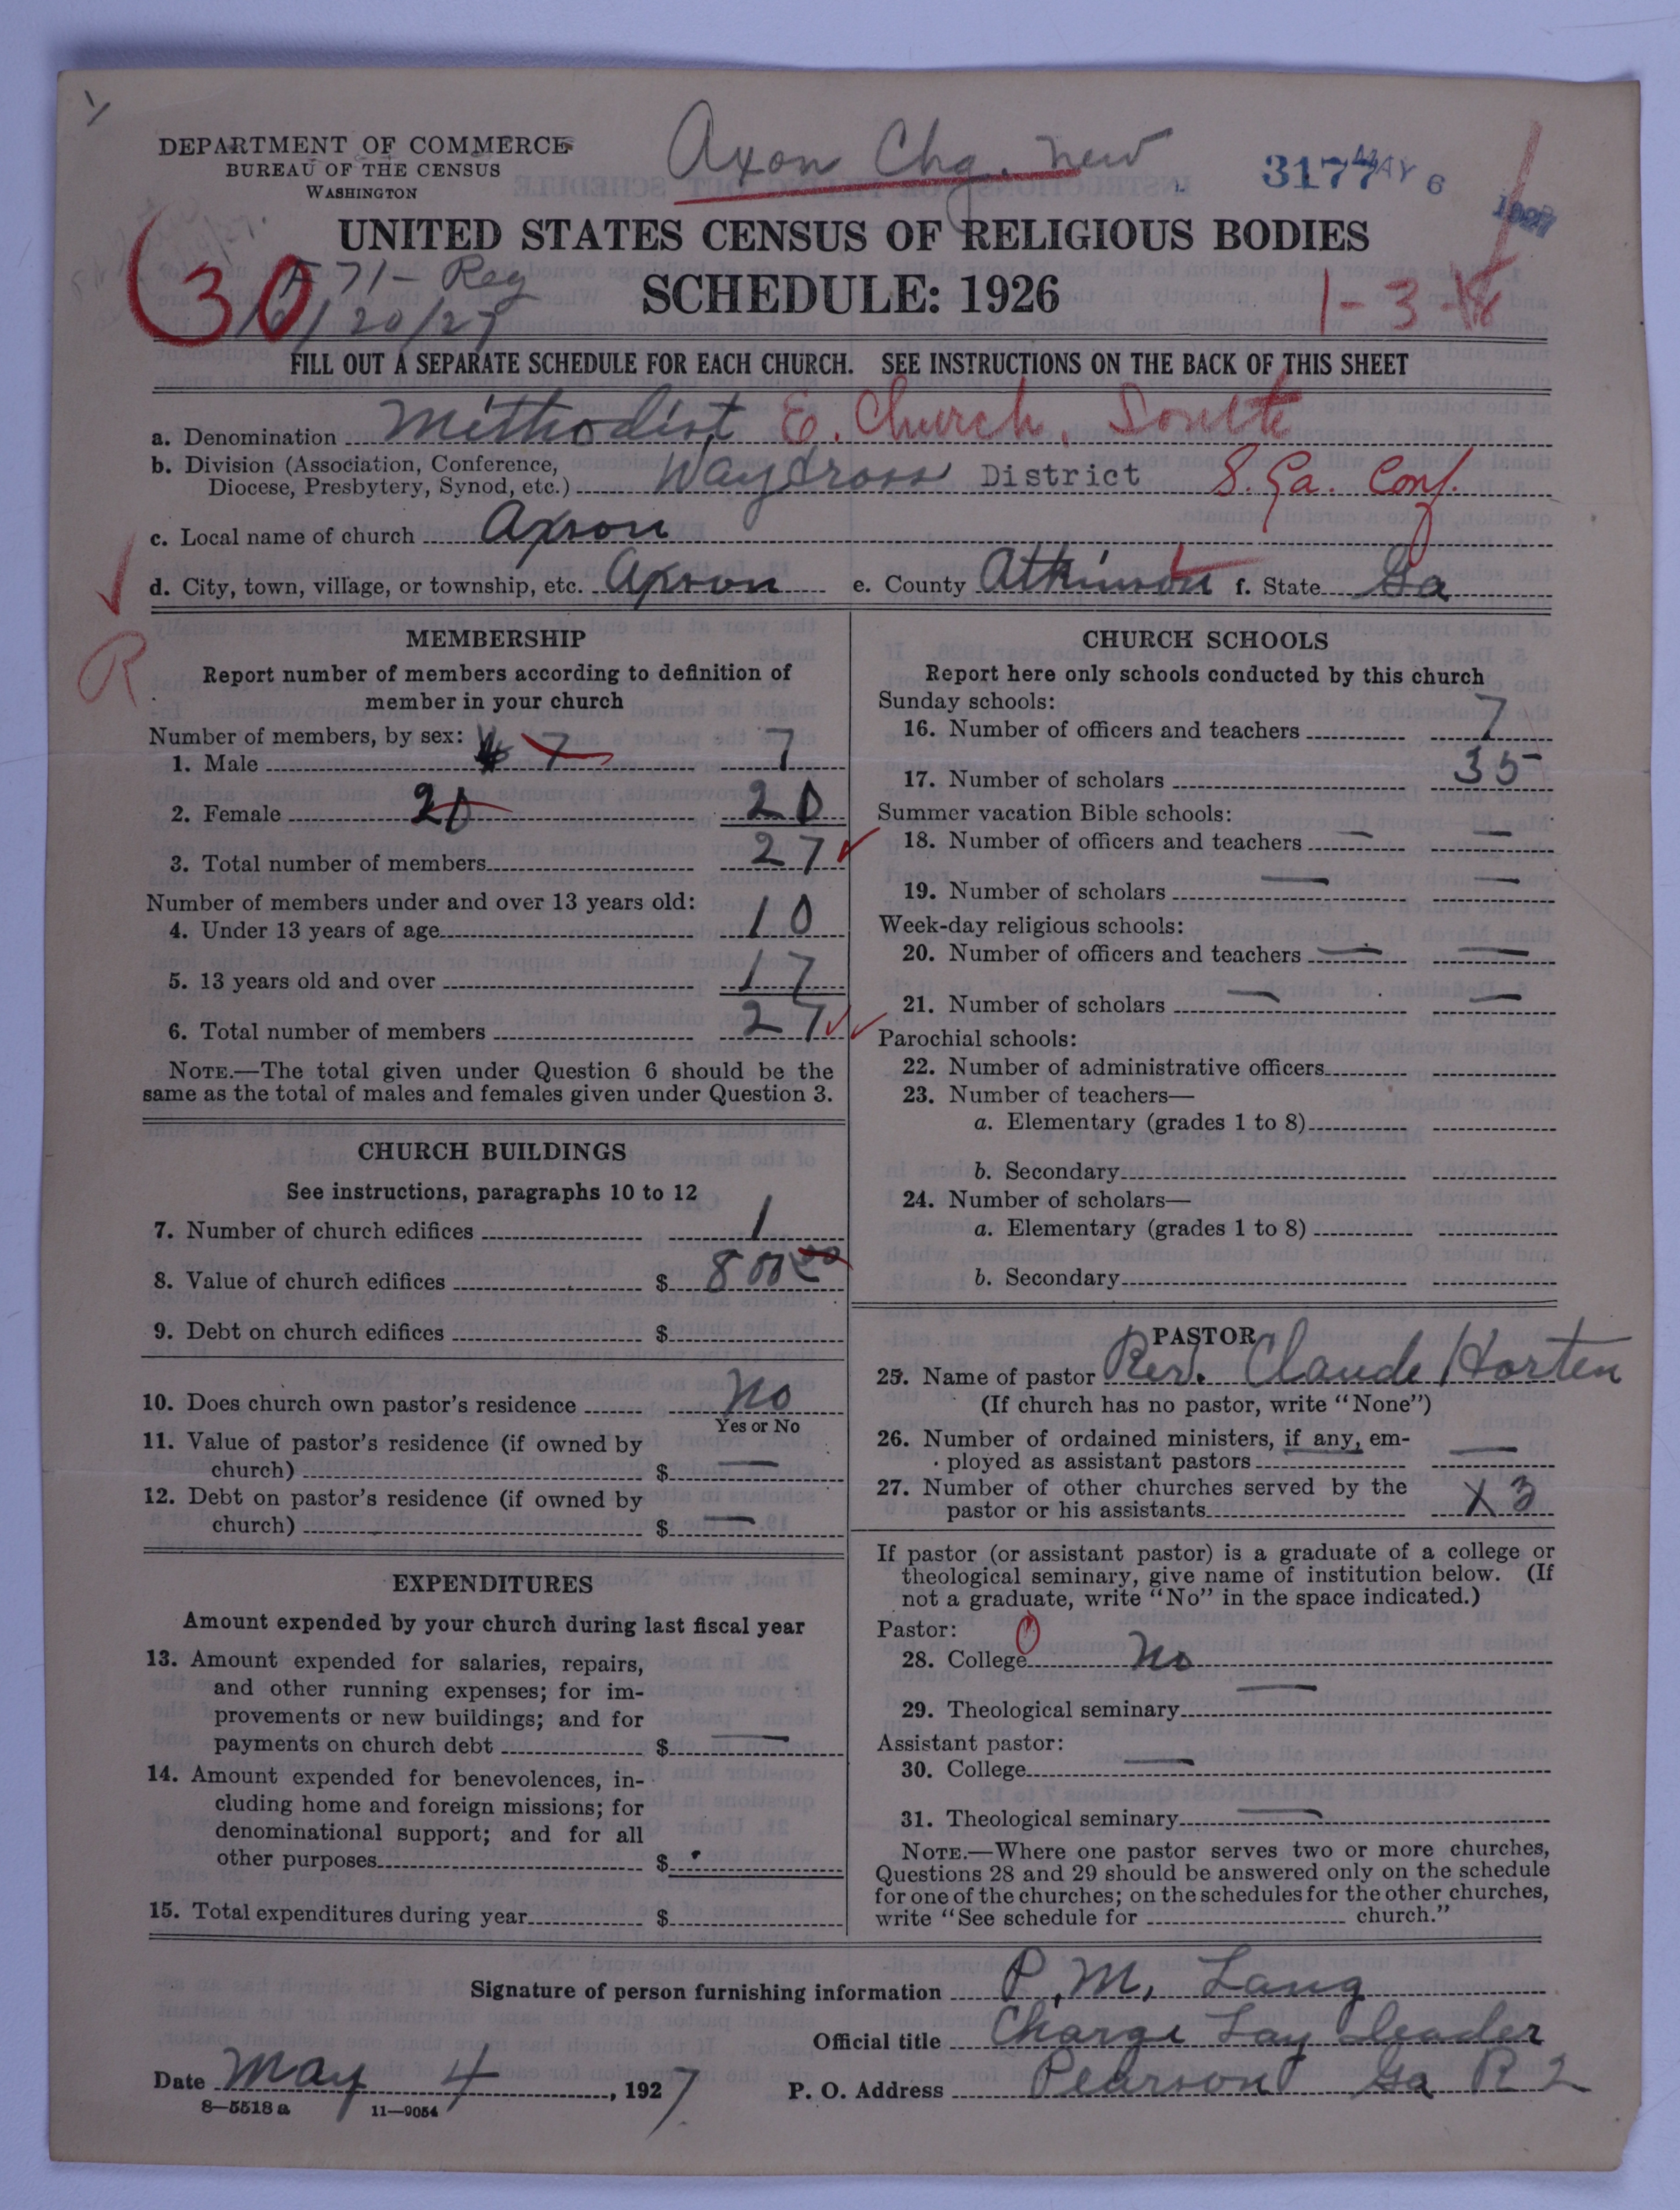 DEPARTMENT OF COMMERCE
BUREAU OF THE CENSUS
WASHINGTON
Axon Chg. new
3177
MAY 6
UNITED STATES CENSUS OF RELIGIOUS BODIES
SCHEDULE: 1926
30
571- Reg
6/20/27
1-3-
FILL OUT A SEPARATE SCHEDULE FOR EACH CHURCH. SEE INSTRUCTIONS ON THE BACK OF THIS SHEET
a. Denomination Methodist E. Church, South
b. Division (Association, Conference,
Diocese, Presbytery, Synod, etc.) Waycross District S. Ga. Conf.
c. Local name of church Axson
d. City, town, village, or township, etc. Axson e. County Atkinson f. State Ga
R
MEMBERSHIP
Report number of members according to definition of
member in your church
Number of members, by sex:
1. Male 7 7
2. Female 20 20
3. Total number of members 27
Number of members under and over 13 years old:
4. Under 13 years of age 10
5. 13 years old and over 17
6. Total number of members 27
NOTE.—The total given under Question 6 should be the
same as the total of males and females given under Question 3.
CHURCH BUILDINGS
See instructions, paragraphs 10 to 12
7. Number of church edifices 1
8. Value of church edifices $ 800 00
9. Debt on church edifices $
10. Does church own pastor's residence No
Yes or No
11. Value of pastor's residence (if owned by
church) $ —
12. Debt on pastor's residence (if owned by
church) $ —
EXPENDITURES
Amount expended by your church during last fiscal year
13. Amount expended for salaries, repairs,
and other running expenses; for im-
provements or new buildings; and for
payments on church debt $ —
14. Amount expended for benevolences, in-
cluding home and foreign missions; for
denominational support; and for all
other purposes $
15. Total expenditures during year $
CHURCH SCHOOLS
Report here only schools conducted by this church
Sunday schools:
16. Number of officers and teachers 7
17. Number of scholars 35
Summer vacation Bible schools:
18. Number of officers and teachers — —
19. Number of scholars — —
Week-day religious schools:
20. Number of officers and teachers — —
21. Number of scholars — —
Parochial schools:
22. Number of administrative officers
23. Number of teachers—
a. Elementary (grades 1 to 8)
b. Secondary
24. Number of scholars—
a. Elementary (grades 1 to 8)
b. Secondary
PASTOR
25. Name of pastor Rev. Claude Horten
(If church has no pastor, write "None")
26. Number of ordained ministers, if any, em-
ployed as assistant pastors —
27. Number of other churches served by the
pastor or his assistants X 3
If pastor (or assistant pastor) is a graduate of a college or
theological seminary, give name of institution below. (If
not a graduate, write "No" in the space indicated.)
Pastor:
28. College No
29. Theological seminary —
Assistant pastor:
30. College —
31. Theological seminary —
NOTE.—Where one pastor serves two or more churches,
Questions 28 and 29 should be answered only on the schedule
for one of the churches; on the schedules for the other churches,
write "See schedule for church."
Signature of person furnishing information P. M. Lang
Official title Charge Lay leader
Date May 4, 1927 P. O. Address Pearson Ga R 2
8—5518 a 11—9054